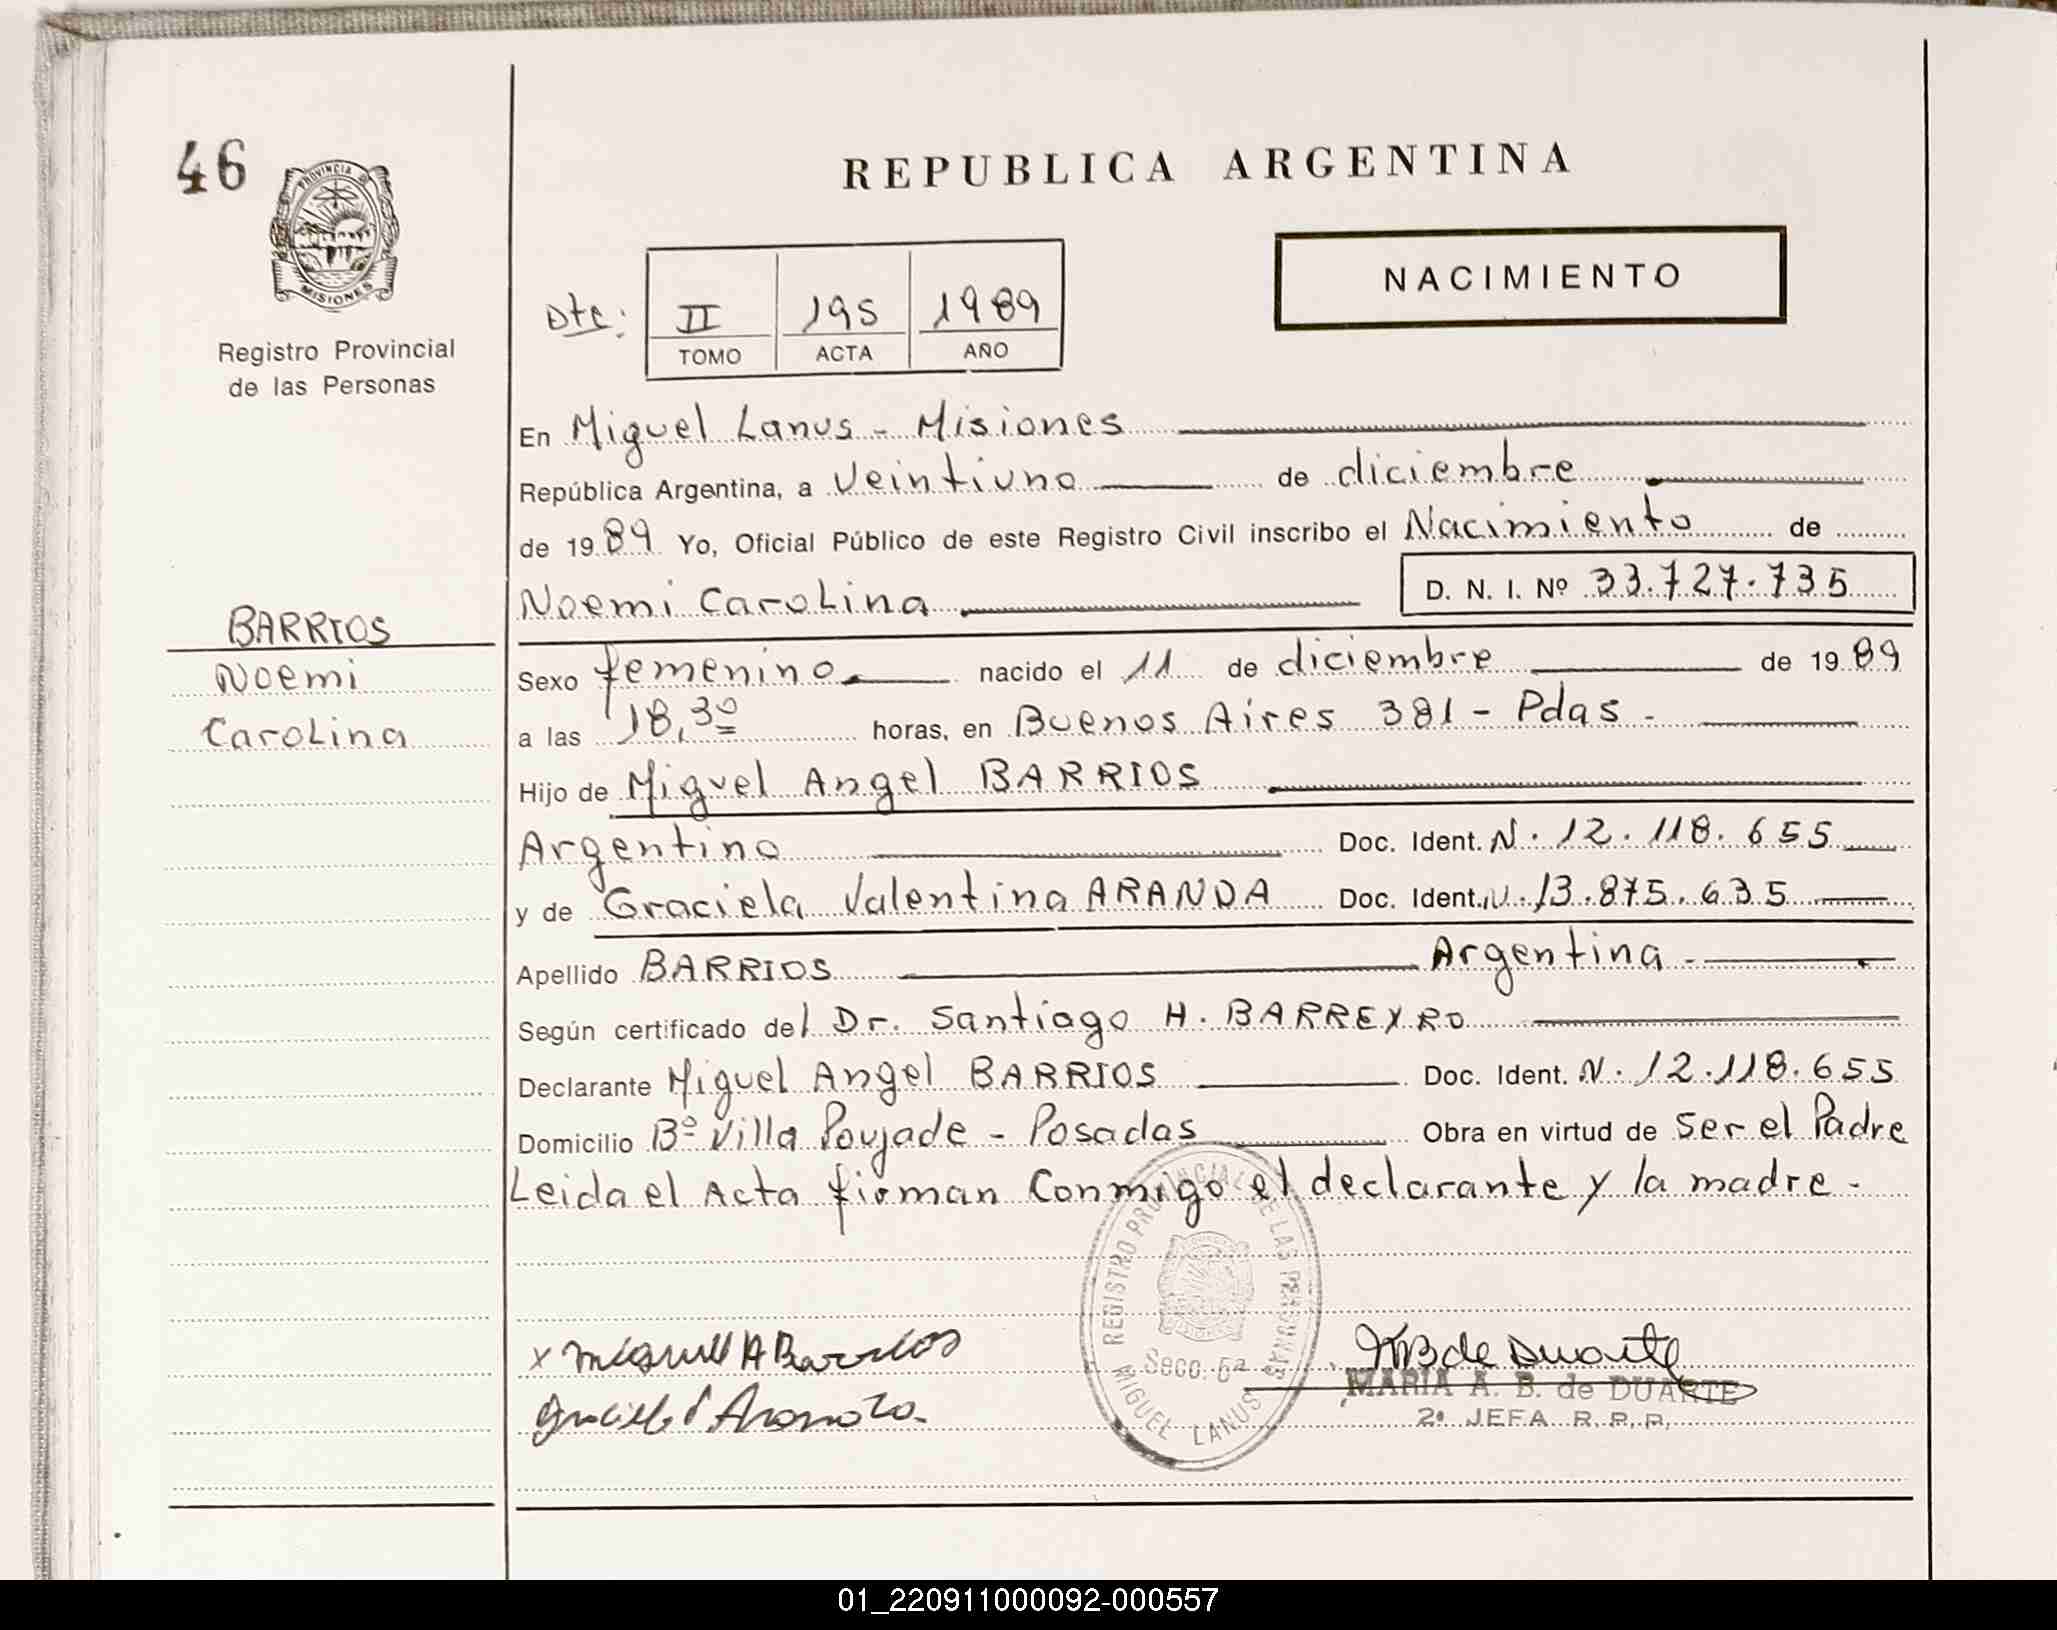 46
PROVINCIA DE
MISIONES
Registro Provincial
de las Personas
REPUBLICA ARGENTINA
NACIMIENTO
Dte: II 195 1989
TOMO ACTA AÑO
En Miguel Lanus - Misiones
República Argentina, a Veintiuno de diciembre
de 1989 Yo, Oficial Público de este Registro Civil inscribo el Nacimiento de
Noemi Carolina D. N. I. Nº 33.727.735
BARRIOS
Noemi
Carolina
Sexo femenino nacido el 11 de diciembre de 1989
a las 18,30 horas, en Buenos Aires 381 - Pdas -
Hijo de Miguel Angel BARRIOS
Argentino Doc. Ident. N. 12.118.655
y de Graciela Valentina ARANDA Doc. Ident. N. 13.875.635
Apellido BARRIOS Argentina -
Según certificado del Dr. Santiago H. BARREYRO
Declarante Miguel Angel BARRIOS Doc. Ident. N. 12.118.655
Domicilio Bº Villa Poujade - Posadas Obra en virtud de Ser el Padre
Leida el Acta firman Conmigo el declarante y la madre -
REGISTRO PROVINCIAL DE LAS PERSONAS
Secc. 5ª
MIGUEL LANUS
x Miguel A Barrios
MB de Duarte
MARIA A. B. de DUARTE
2ª JEFA R. P. P.
01_220911000092-000557